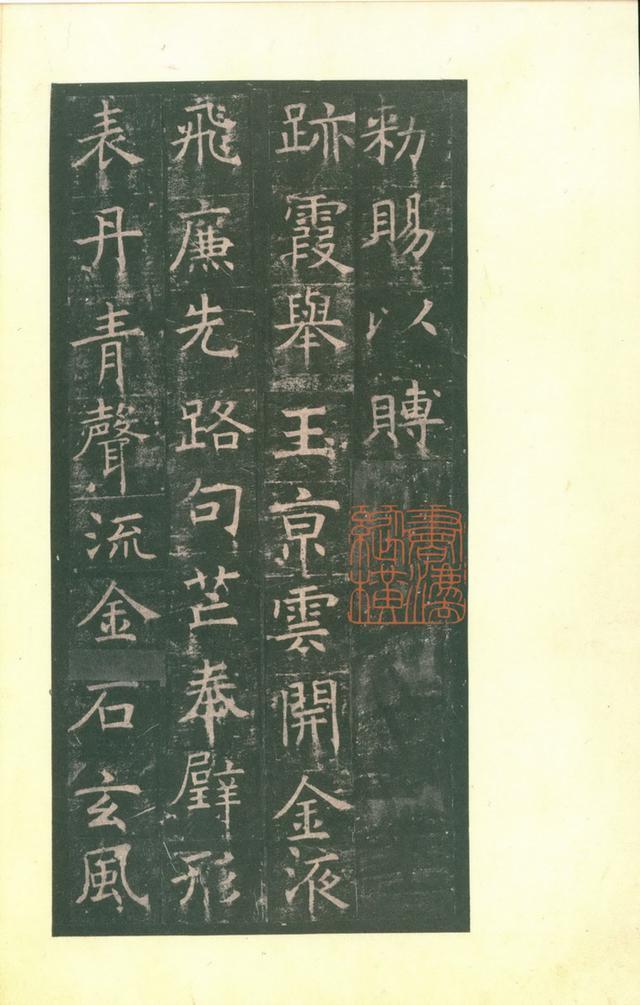 勑賜以賻
跡霞舉玉京雲開金液
飛廉先路句芒奉璧形
表丹青聲流金石玄風